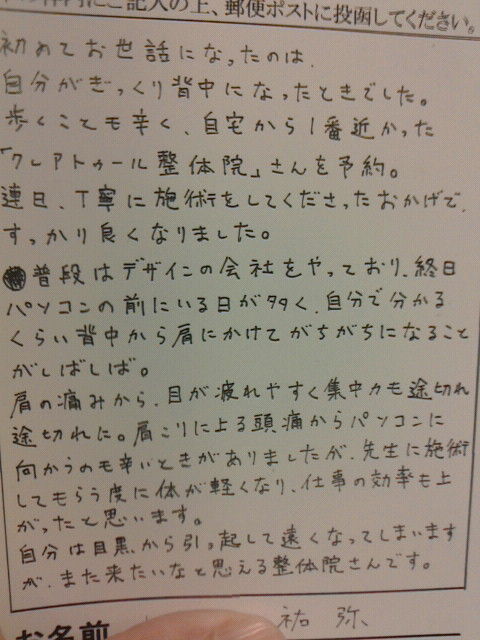 にご記入の上、郵便ポストに投函してください。
初めてお世話になったのは、
自分がぎっくり背中になったときでした。
歩くことも辛く、自宅から1番近かった
「クレアトゥール整体院」さんを予約。
連日、丁寧に施術をしてくださったおかげで、
すっかり良くなりました。
普段はデザインの会社をやっており、終日
パソコンの前にいる日が多く、自分で分かる
くらい背中から肩にかけてがちがちになること
がしばしば。
肩の痛みから、目が疲れやすく集中力も途切れ
途切れに。肩こりに上る頭痛からパソコンに
向かうのも辛いときがありましたが、先生に施術
してもらう度に体が軽くなり、仕事の効率も上
がったと思います。
自分は目黒、から引っ起して遠くなってしまいます
が、また来たいなと思える整体院さんです。
お名前 祐弥